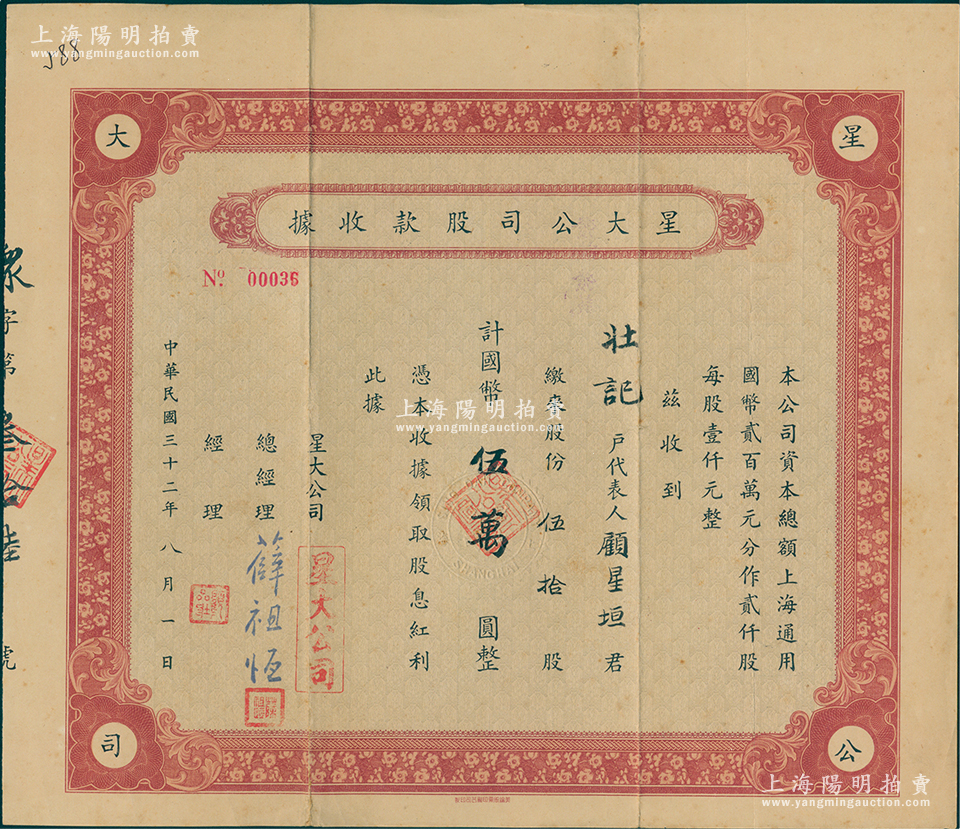 上海陽明拍賣
www.yangmingauction.com
J88
星
大
公
司
星大公司股款收據
No. 00036
本公司資本總額上海通用
國幣貳百萬元分作貳仟股
每股壹仟元整
茲收到
壯記戶代表人顧星垣君
繳來股份伍拾股
計國幣伍萬圓整
憑本收據領取股息紅利
此據
星大公司
星大公司
總經理薛祖恆
經理
中華民國三十二年八月一日
眾字第叁拾陸號
SHANGHAI
上海陽明拍賣
www.yangmingauction.com
上海陽明拍賣
www.yangmingauction.com